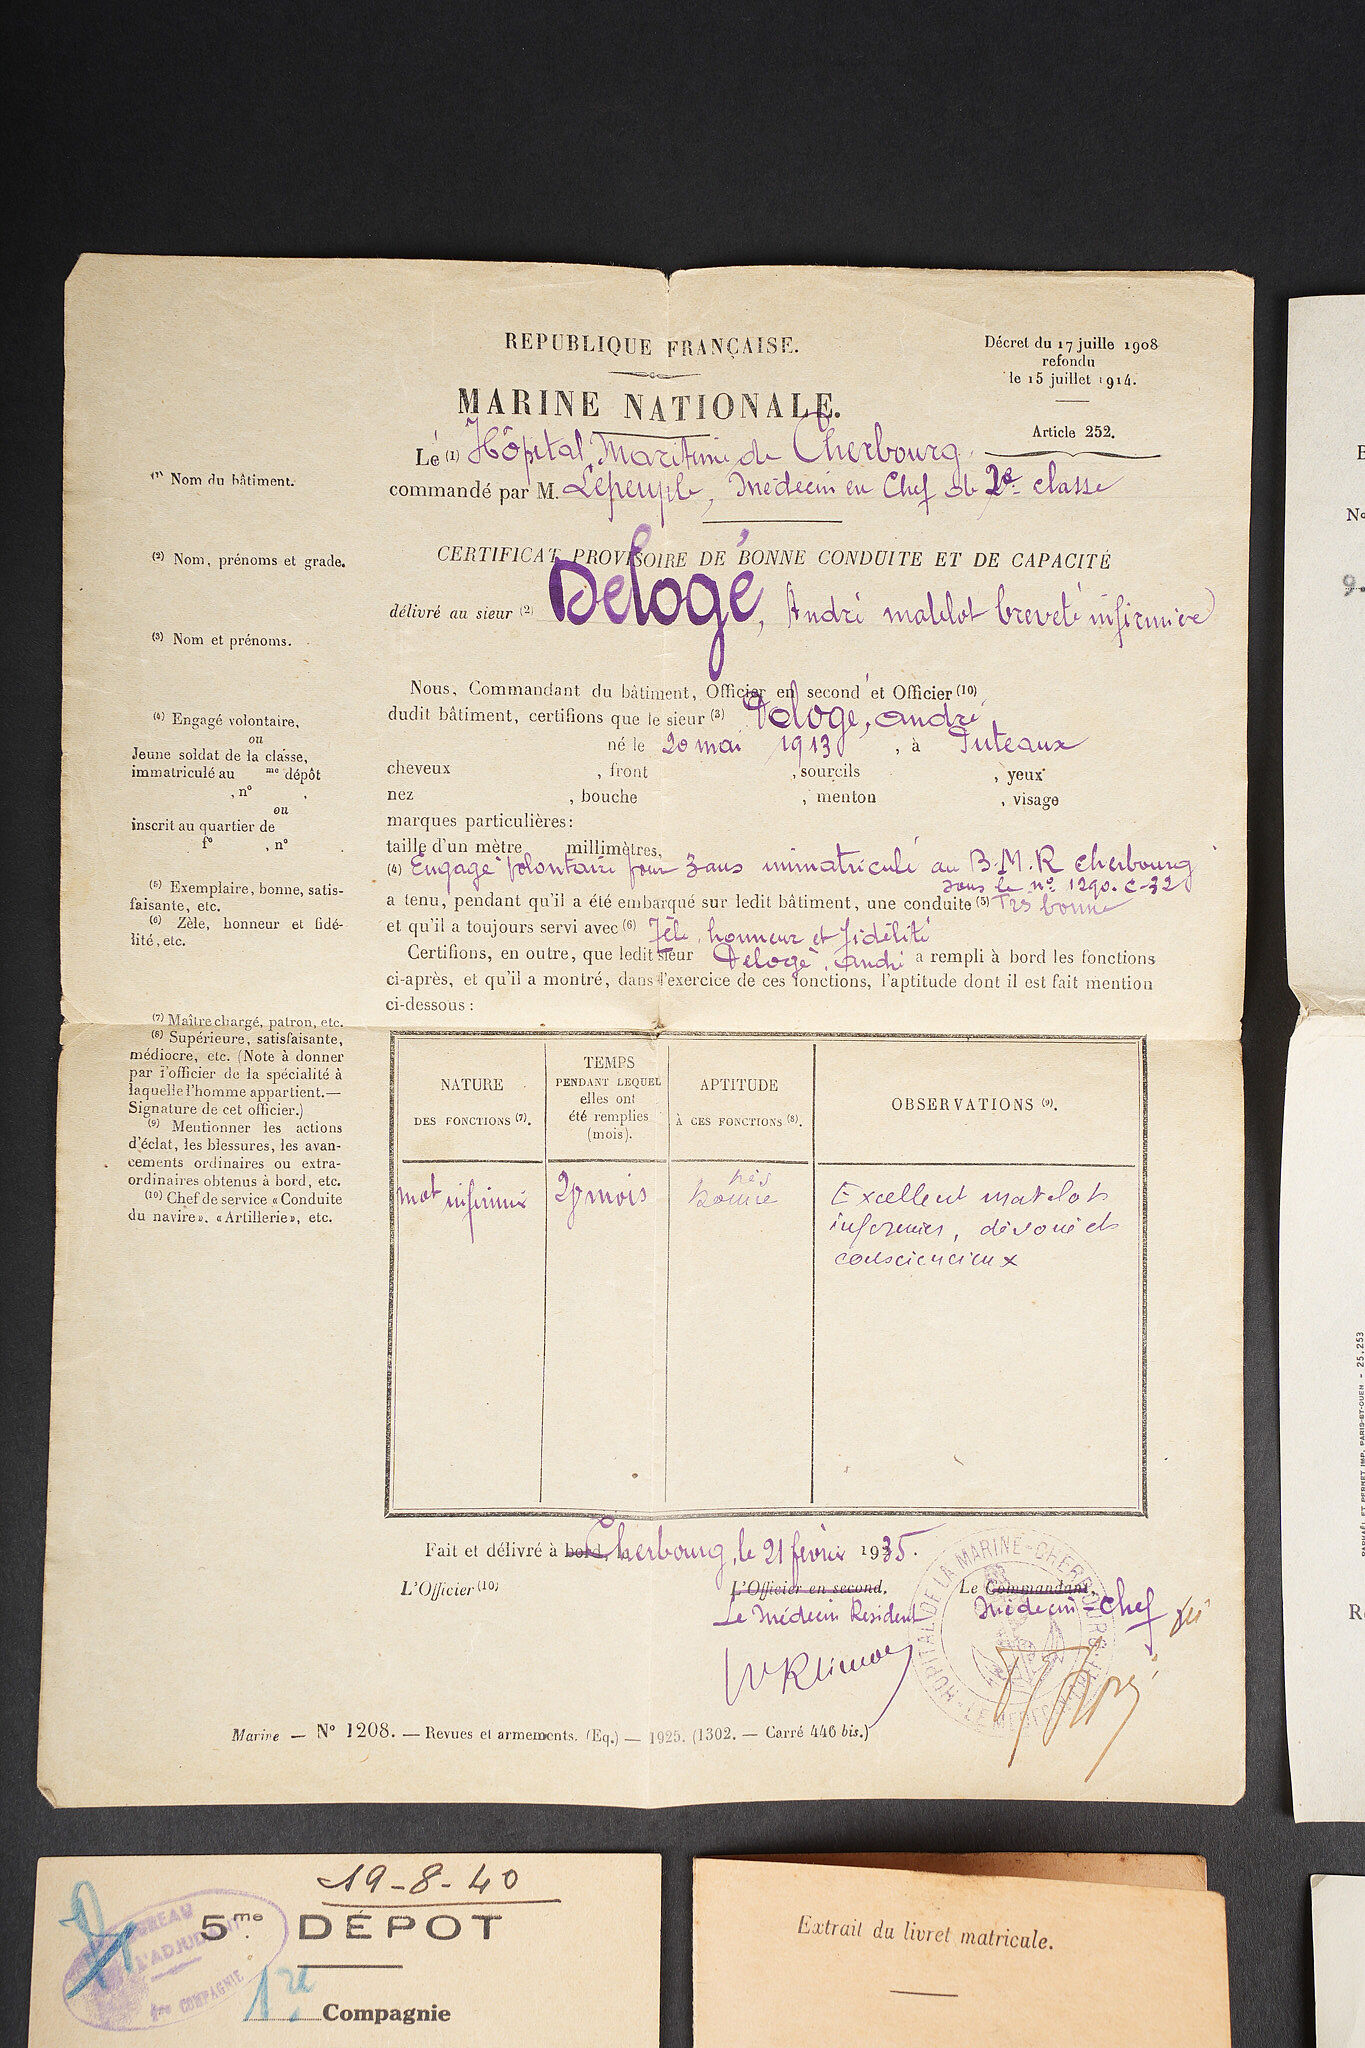 REPUBLIQUE FRANÇAISE.
MARINE NATIONALE.
Décret du 17 juille 1908
refondu
le 15 juillet 1914.
Article 252.
Le (1) Hôpital Maritime de Cherbourg
commandé par M. Lepeuple, Médecin en Chef de 2e classe
CERTIFICAT PROVISOIRE DE BONNE CONDUITE ET DE CAPACITÉ
délivré au sieur (2) Delogé, André matelot breveté infirmier
(1) Nom du bâtiment.
(2) Nom, prénoms et grade.
(3) Nom et prénoms.
(4) Engagé volontaire,
ou
Jeune soldat de la classe,
immatriculé au me dépôt
, n° ,
ou
inscrit au quartier de
f° , n°
(5) Exemplaire, bonne, satis-
faisante, etc.
(6) Zèle, honneur et fidé-
lité, etc.
(7) Maître chargé, patron, etc.
(8) Supérieure, satisfaisante,
médiocre, etc. (Note à donner
par l'officier de la spécialité à
laquelle l'homme appartient.—
Signature de cet officier.)
(9) Mentionner les actions
d'éclat, les blessures, les avan-
cements ordinaires ou extra-
ordinaires obtenus à bord, etc.
(10) Chef de service « Conduite
du navire», «Artillerie», etc.
Nous, Commandant du bâtiment, Officier en second et Officier (10)
dudit bâtiment, certifions que le sieur (3) Delogé, André
né le 20 mai 1913 , à Puteaux
cheveux , front , sourcils , yeux
nez , bouche , menton , visage
marques particulières :
taille d'un mètre millimètres,
(4) Engagé Volontaire pour 3 ans immatriculé au B.M.R Cherbourg
sous le n° 1290. C-32
a tenu, pendant qu'il a été embarqué sur ledit bâtiment, une conduite (5) Très bonne
et qu'il a toujours servi avec (6) Zèle, honneur et fidélité
Certifions, en outre, que ledit sieur Delogé, André a rempli à bord les fonctions
ci-après, et qu'il a montré, dans l'exercice de ces fonctions, l'aptitude dont il est fait mention
ci-dessous :
NATURE
DES FONCTIONS (7).
TEMPS
PENDANT LEQUEL
elles ont
été remplies
(mois).
APTITUDE
À CES FONCTIONS (8).
OBSERVATIONS (9).
mat infirmier
mois
très
bonne
Excellent matelot
infirmier, dévoué et
consciencieux
Fait et délivré à bord, le Cherbourg, le 21 février 1935.
L'Officier (10)
L'Officier en second,
Le Médecin Resident
Le Commandant,
Médecin-Chef
HOPITAL DE LA MARINE-CHERBOURG
Marine — N° 1208. — Revues et armements. (Eq.) — 1925. (1302. — Carré 446 bis.)
19-8-40
5me DÉPOT
1re Compagnie
BUREAU
L'ADJUDANT
COMPAGNIE
Extrait du livret matricule.
RAPHAËL ET PERRET IMP. PARIS-ST-OUEN - 25.253